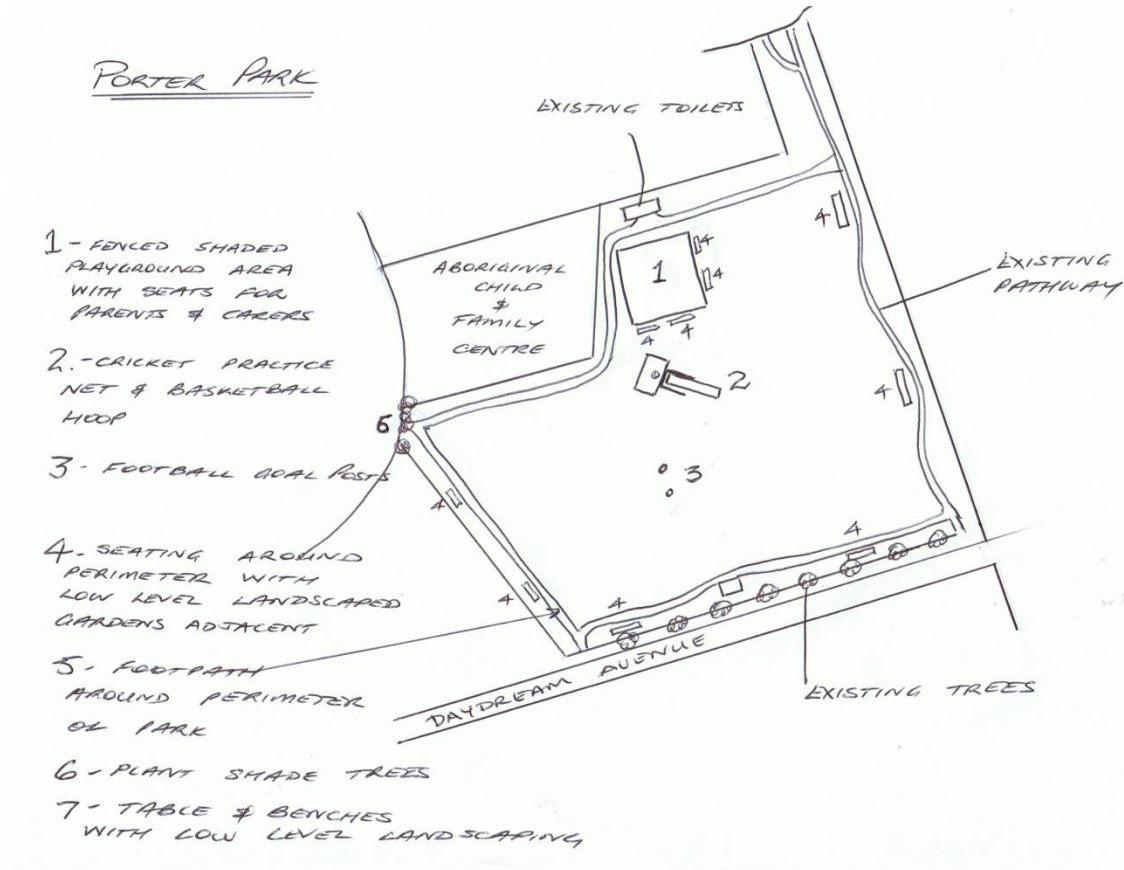 PORTER PARK
EXISTING TOILETS
1 - FENCED SHADED
PLAYGROUND AREA
WITH SEATS FOR
PARENTS & CARERS
2. - CRICKET PRACTICE
NET & BASKETBALL
HOOP
3 - FOOTBALL GOAL POSTS
4. SEATING AROUND
PERIMETER WITH
LOW LEVEL LANDSCAPED
GARDENS ADJACENT
5 - FOOTPATH
AROUND PERIMETER
OF PARK
6 - PLANT SHADE TREES
7 - TABLE & BENCHES
WITH LOW LEVEL LANDSCAPING
ABORIGINAL
CHILD
&
FAMILY
CENTRE
1
4
4
4
4
4
EXISTING
PATHWAY
2
4
6
3
4
4
4
4
DAYDREAM AVENUE
EXISTING TREES